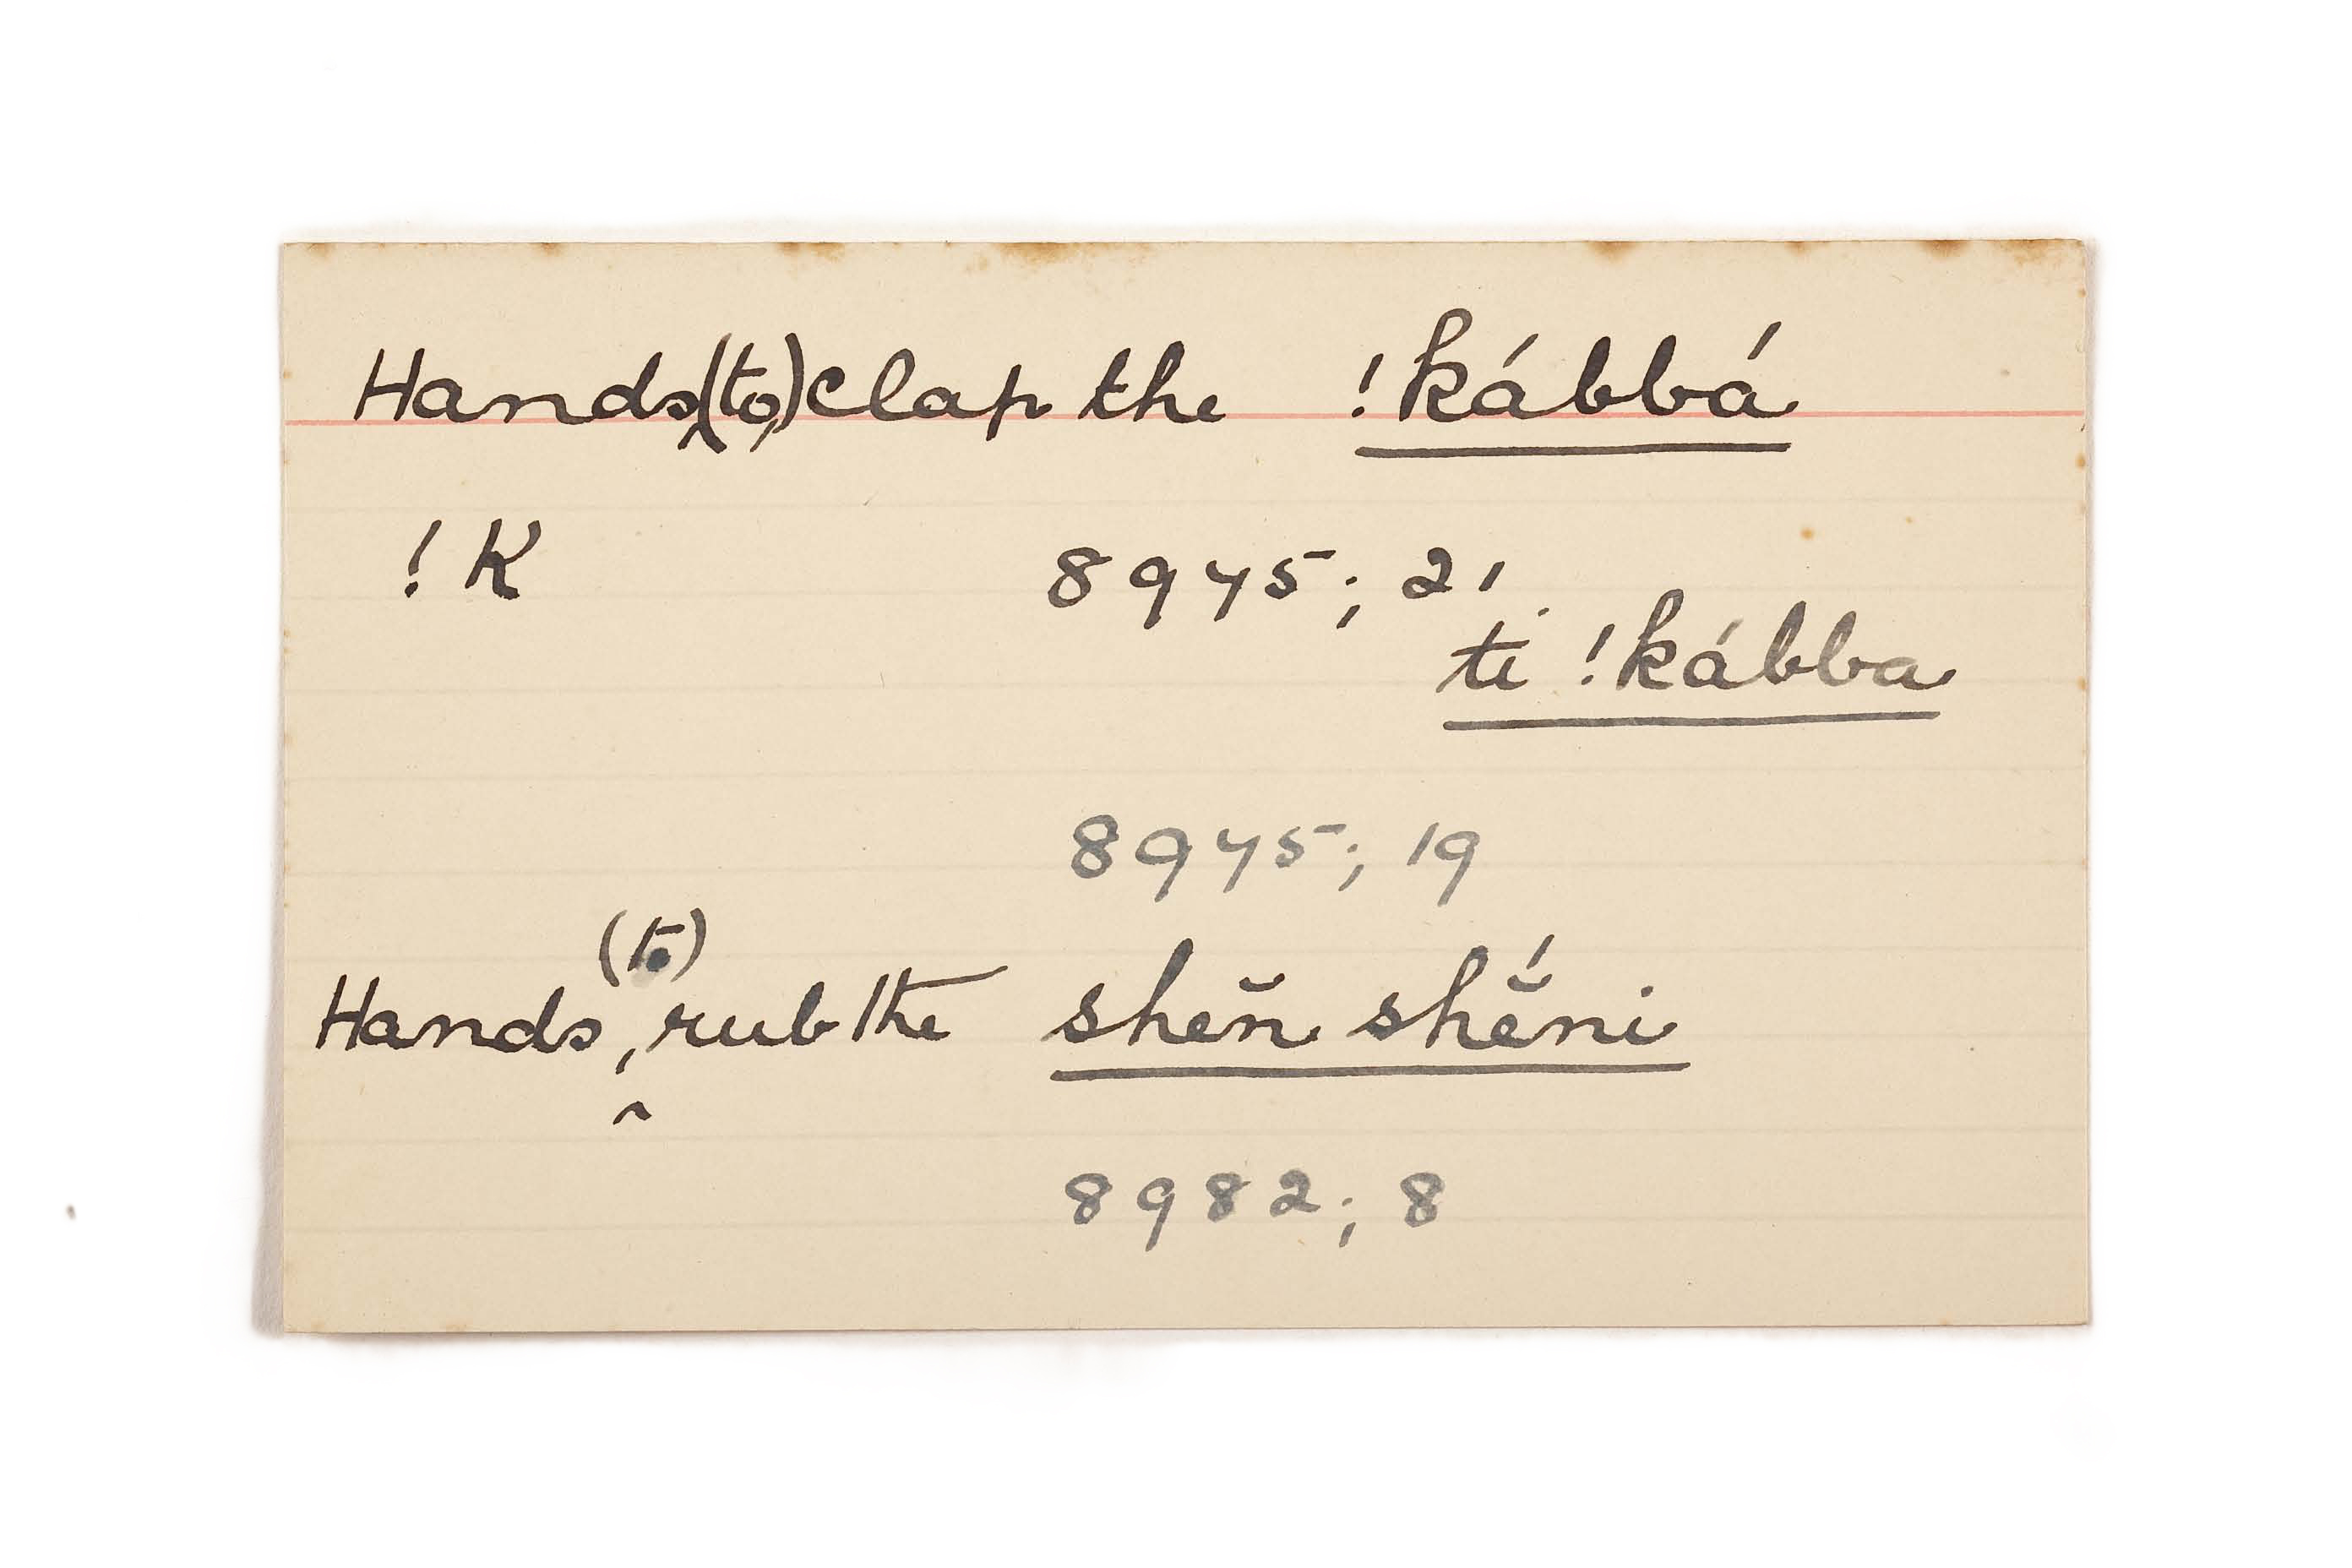 Hands, (to) clap the !kábbá
!K 8945; 21
ti !kábba
8945; 19
Hands, (to) rub the shĕn shĕ́ni
8982; 8